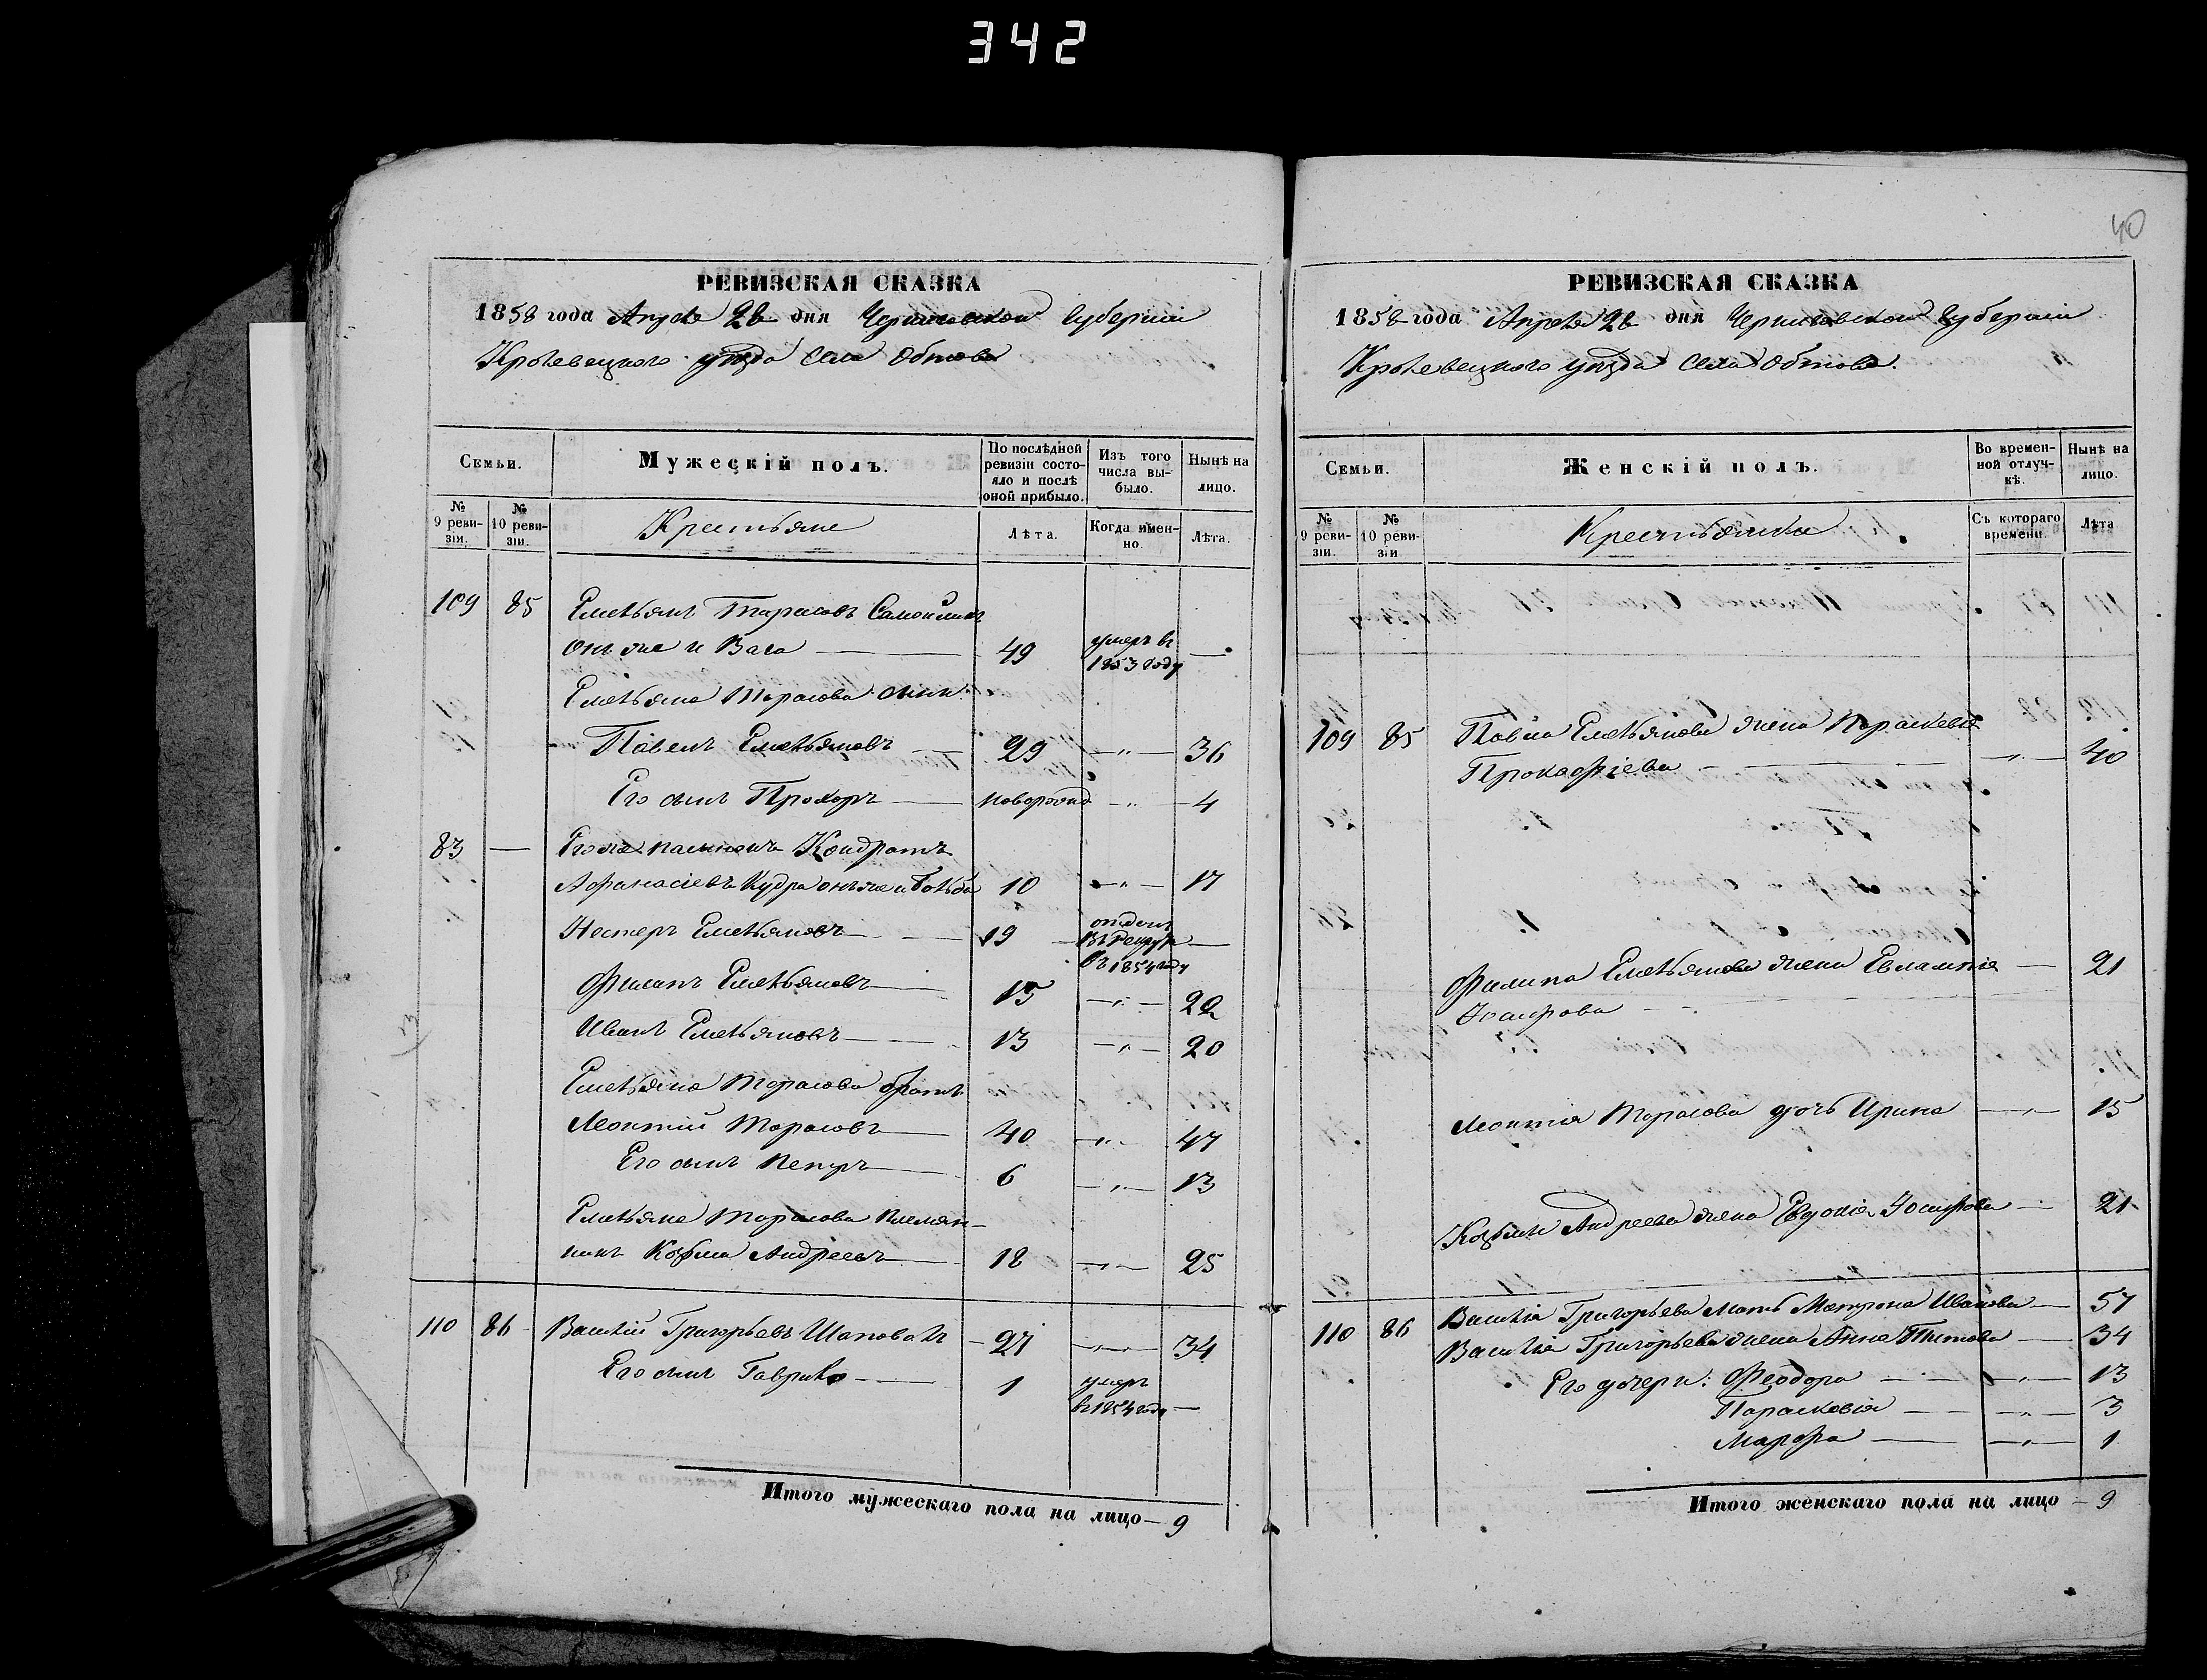 342
40
РЕВИЗСКАЯ СКАЗКА
1858 года Апреля 28 дня Черниговской Губернии
Кролевецкого уѣзда Села Обтова
Семьи.
Мужескій полъ.
По послѣдней ревизіи состояло и послѣ оной прибыло.
Изъ того числа выбыло.
Нынѣ на лицо.
№ 9 ревизіи.
№ 10 ревизіи.
Крестьяне
Лѣта.
Когда именно.
Лѣта.
109 85 Емельянъ Тарасовъ Самойликъ
онъ же и Вага — 49 умеръ въ 1853 году —
Емельяна Тарасова сыни:
Павелъ Емельяновъ — 29 — " — 36
Его сынъ Прохоръ — новорожд — " — 4
83 — Его же пасынокъ Кондратъ
Афанасіевъ Кудра онъ же и 10 — " — 17
Нестеръ Емельяновъ — 19 — отданъ въ Рекруты въ 1854 году —
Филипъ Емельяновъ — 15 — " — 22
Иванъ Емельяновъ — 13 — " — 20
Емельяна Тарасова братъ
Леонтій Тарасовъ — 40 — " — 47
Его сынъ Петръ — 6 — " — 13
Емельяна Тарасова племян-
никъ Козьма Андреевъ — 18 — " — 25
110 86 Василій Григорьевъ Шаповалъ — 27 — " — 34
Его сынъ Гаврило — 1 умеръ въ 1854 году —
Итого мужескаго пола на лицо — 9
РЕВИЗСКАЯ СКАЗКА
1858 года Апреля 28 дня Черниговской Губернии
Кролевецкого уѣзда Села Обтова.
Семьи.
Женскій полъ.
Во временной отлучкѣ.
Нынѣ на лицо.
№ 9 ревизіи.
№ 10 ревизіи
Крестьянки
Съ котораго времени.
Лѣта
109 85 Павла Емельянова жена Параскевія
Прокофіева — " — 40
Филипа Емельянова жена Евлампія — 21
Іосифова
Леонтія Тарасова дочь Ирина — " — 15
Козьмы Андреева жена Евдокія Іосифова — 21
110 86 Василія Григорьева мать Матрона Иванова — 57
Василія Григорьева жена Анна Титова — 34
Его дочери: Феодора — " — 13
Парасковія — " — 3
Марфа — " — 1
Итого женскаго пола на лицо — 9